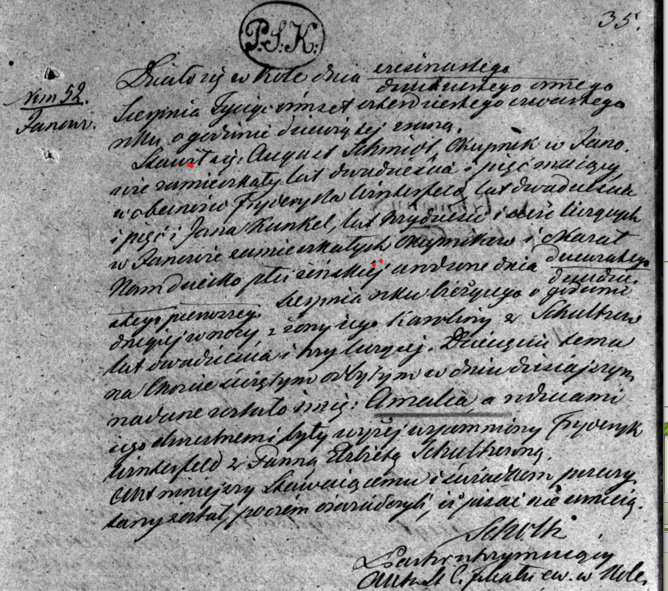 P.S.K.
35.
Num 52.
Janow.
Działo się w Kole dnia
dwudziestego
Sierpnia Tysiąc ośmset czterdziestego czwartego
roku, o godzinie dziewiątej zrana.
Stawił się: August Schmidt Okupnik w Jano-
wie zamieszkały lat dwadzieścia i pięć mający
w obecności Fryderyka Winterfeld, lat dwadzieścia
i pięć i Jana Kunkel, lat trzydzieści i liczących
w Janowie zamieszkałych Okupników i okazał
Nam dziecko płci żeńskiej urodzone dnia
pierwszego Sierpnia roku bieżącego o godzinie
drugiej w nocy z żony jego Karoliny z Schultzów
lat dwadzieścia i trzy liczącej. Dziecięciu temu
na Chrzcie świętym odbytym w dniu dzisiejszym
nadane zostało imię: Amalia, a rodzicami
jego chrzestnemi byli wyżej wspomniony Fryderyk
Winterfeld z Panną Elżbietą Schultzówną.
Akt niniejszy Stawiającemu i świadkom przeczy-
tany został, poczem oświadczyli, iż pisać nie umieją.
Pastor utrzymujący
Akta St. C. w Kole.